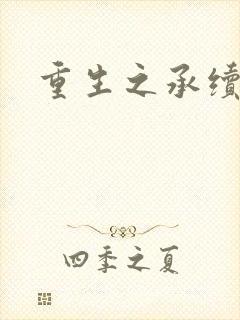 重生之承续
四季之夏